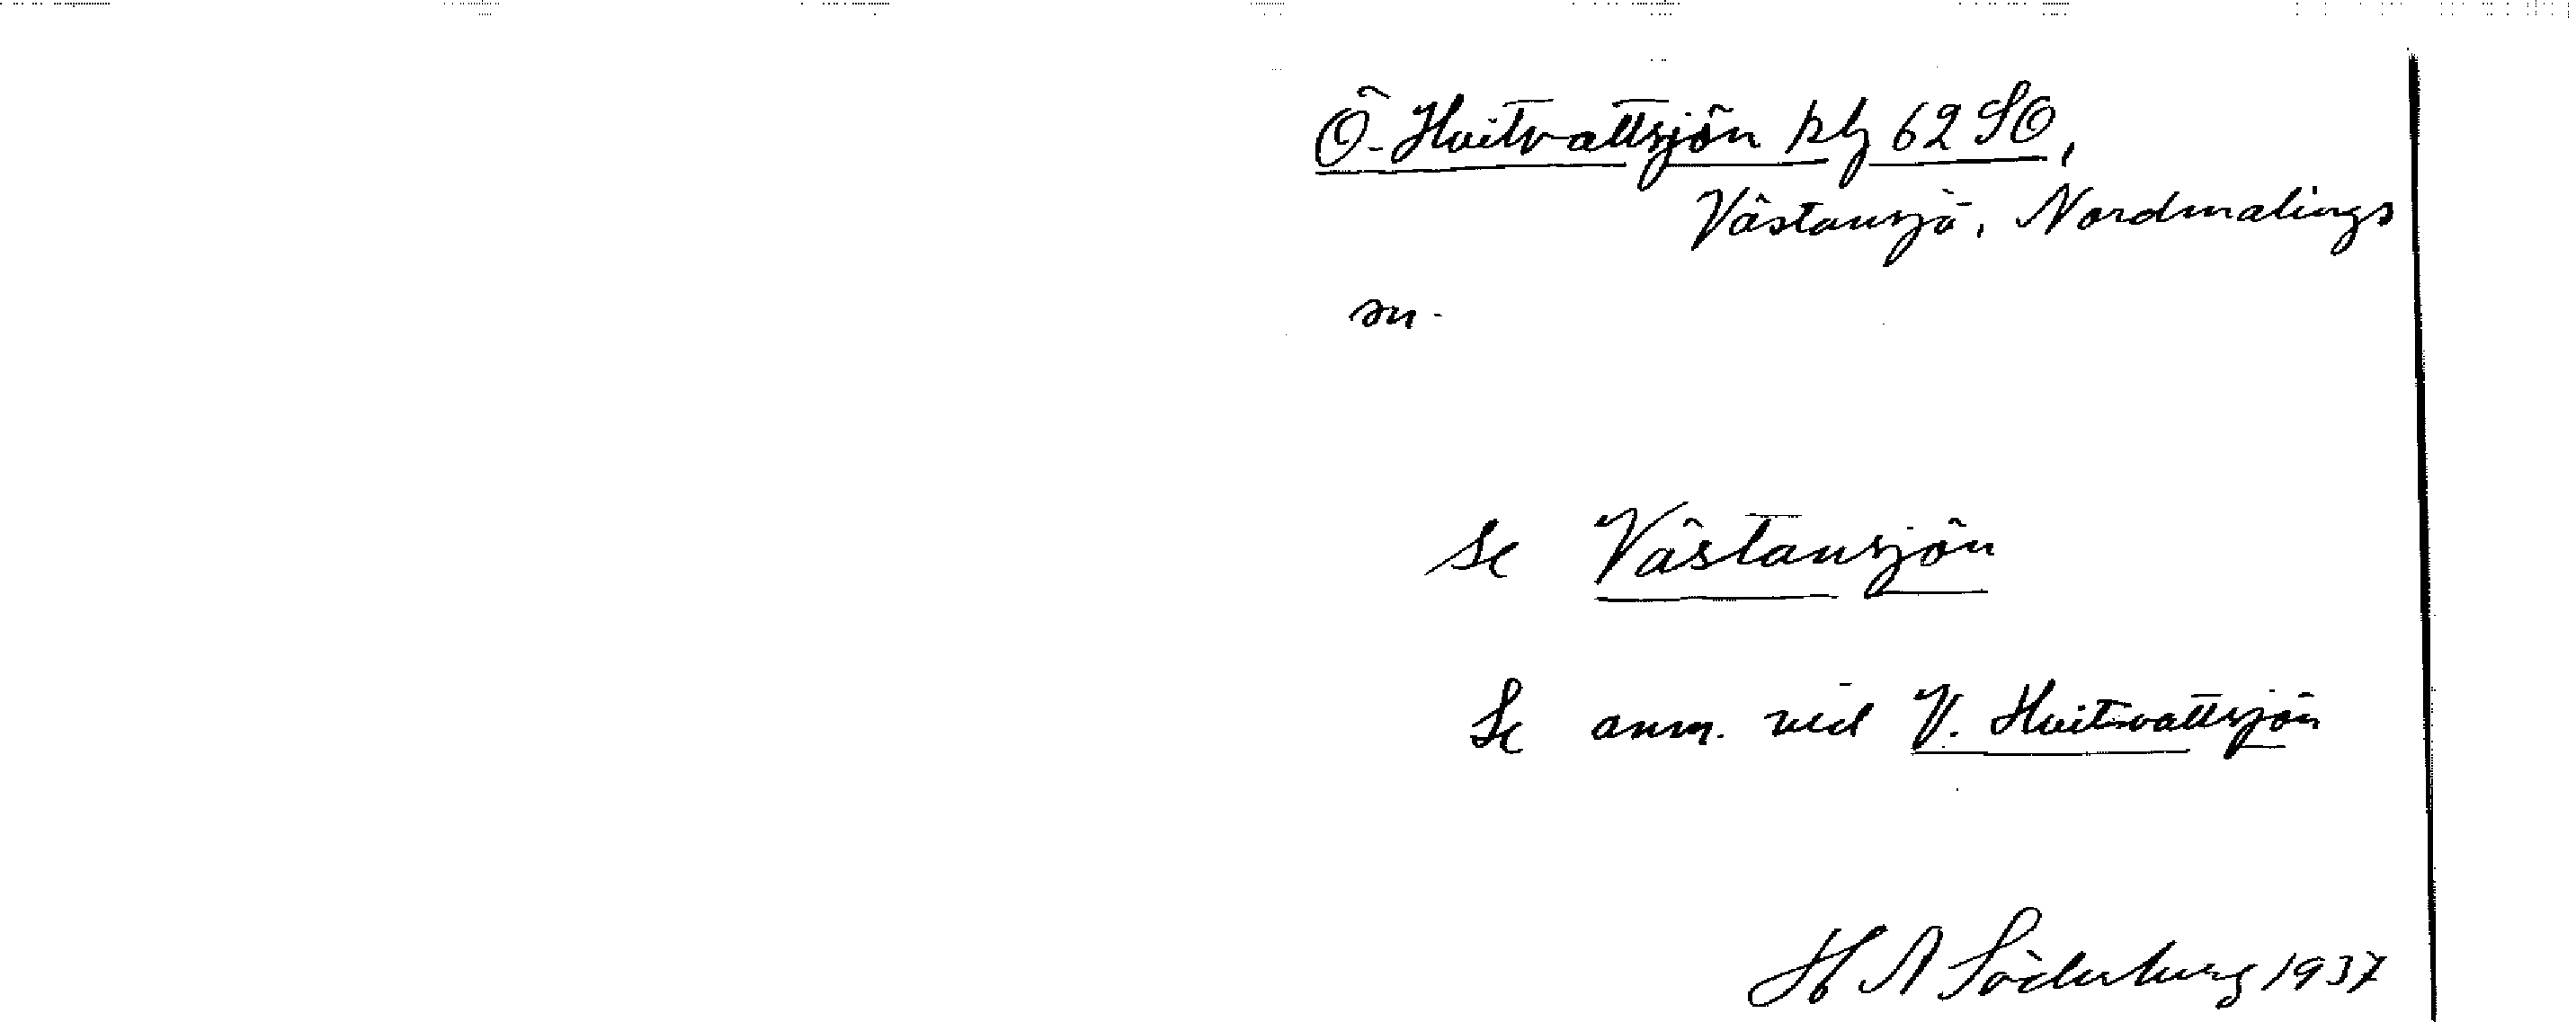 Ö. Hvitvattsjön kbl 62 SO,
Västansjö, Nordmalings
sn.
se Västansjön
Se anm. vid V. Hvitvattsjön
H A Söderberg 1937